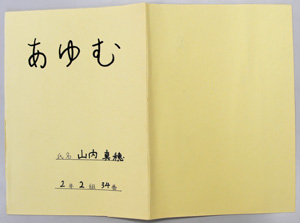 あゆむ
氏名 山内 真穂
2年2組34番